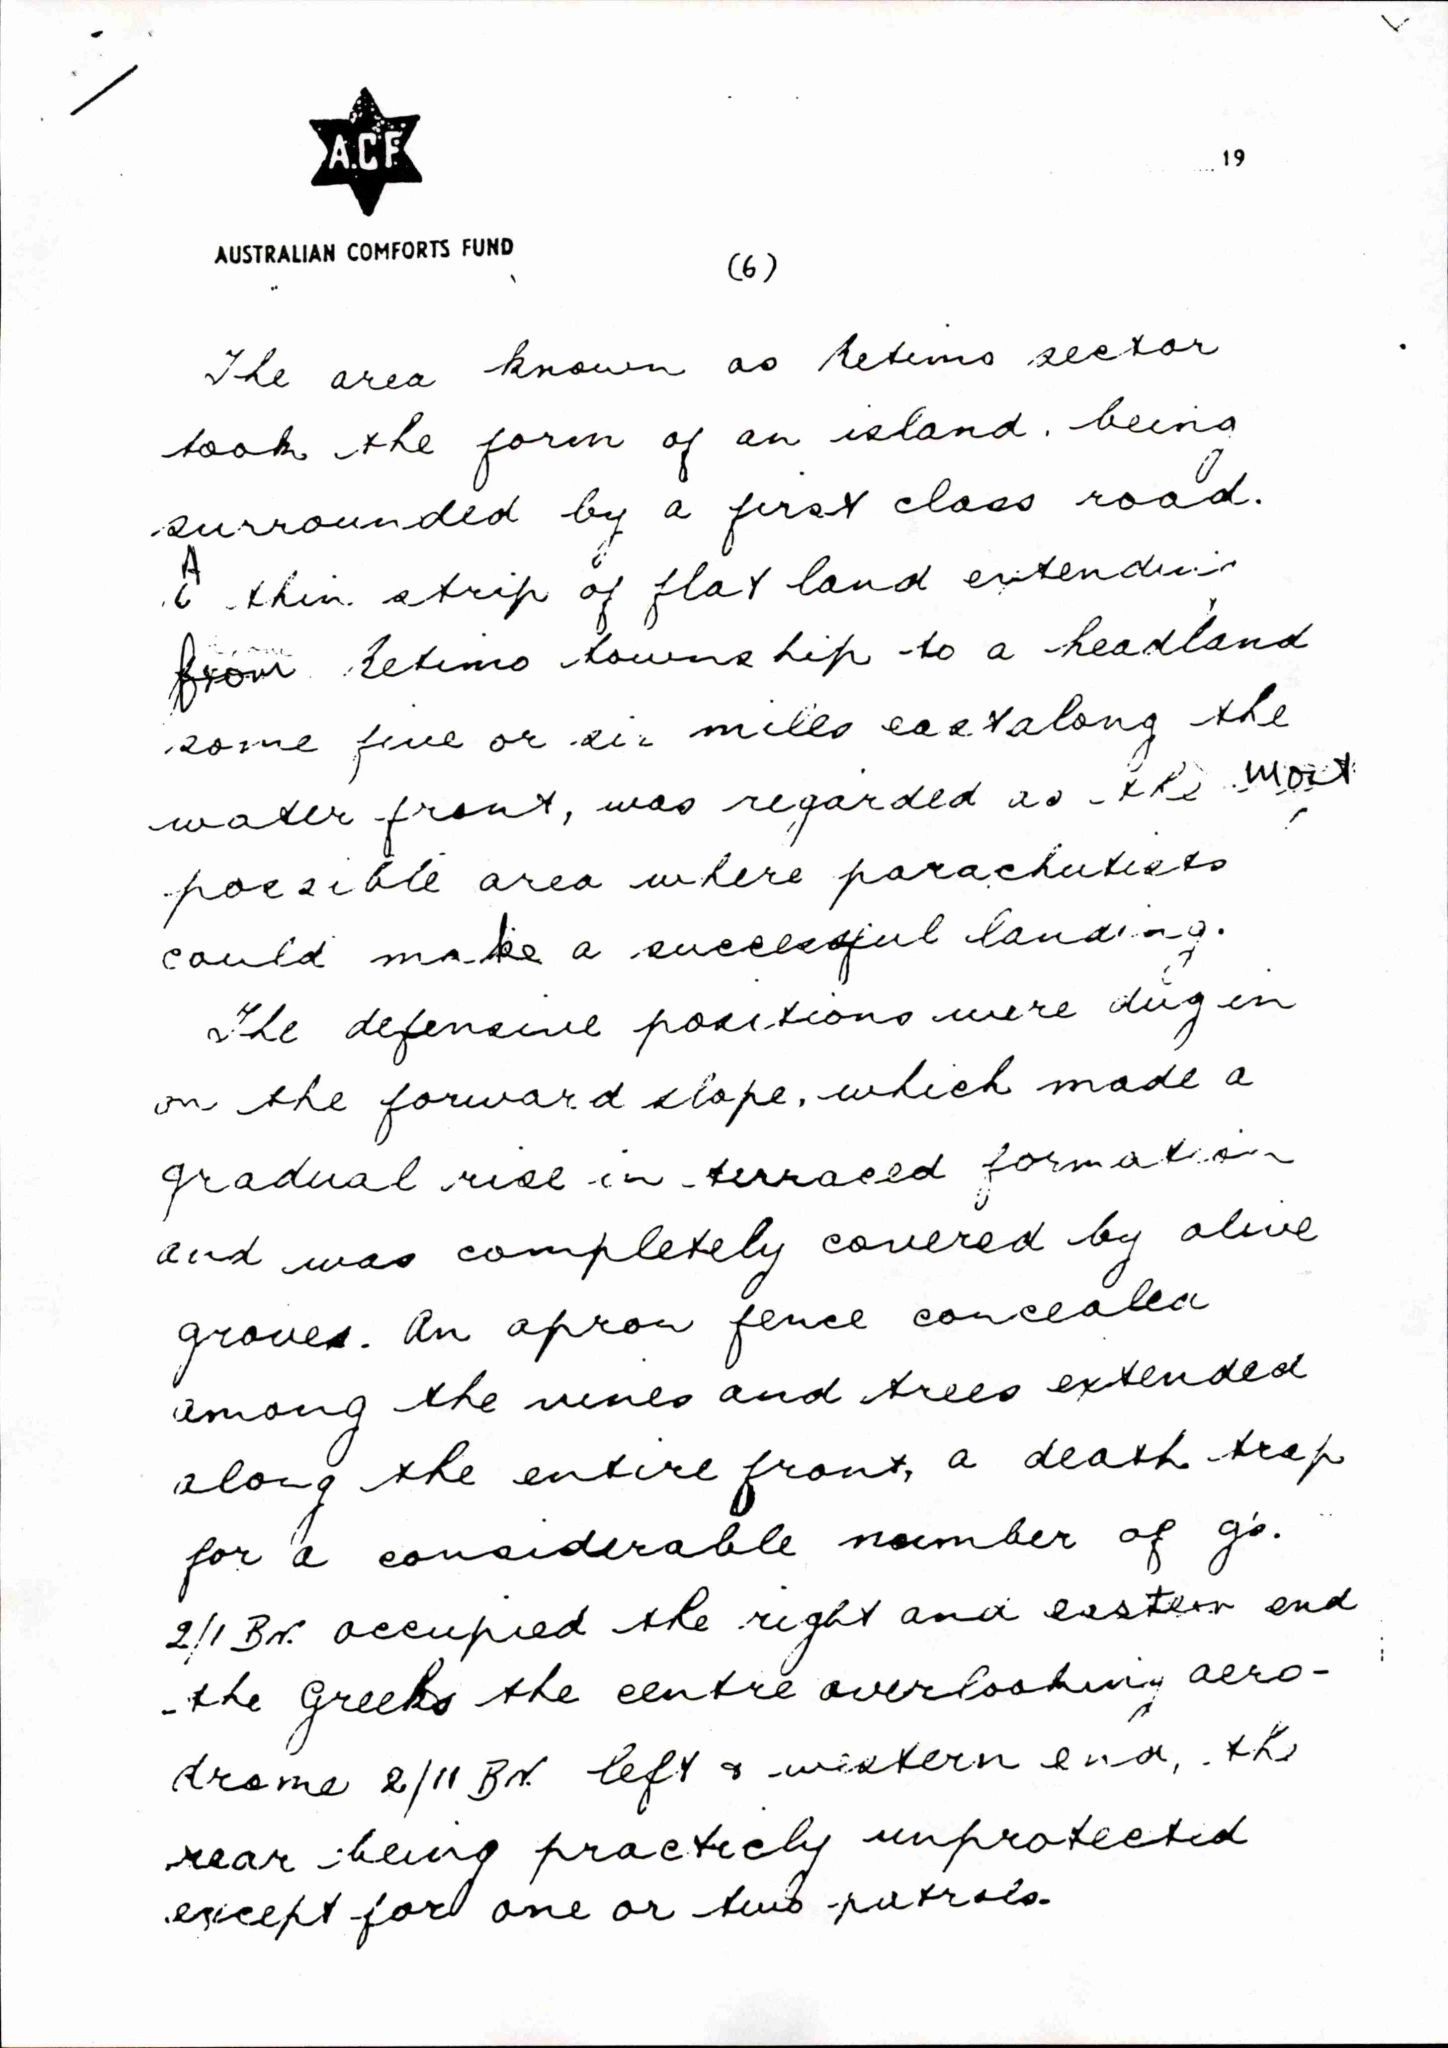 A.C.F.
19
AUSTRALIAN COMFORTS FUND
(6)
The area known as Retimo sector
took the form of an island. being
surrounded by a first class road.
A thin strip of flat land extending
from Retimo township to a headland
some five or six miles east along the
water front, was regarded as the most
possible area where parachutists
could make a successful landing.
The defensive positions were dug in
on the forward slope. which made a
gradual rise in terraced formation
and was completely covered by olive
groves. An apron fence concealed
among the vines and trees extended
along the entire front, a death trap
for a considerable number of g's.
2/1 BN. occupied the right and eastern end
the Greeks the centre overlooking aero-
drome 2/11 BN. left & western end, the
rear being practicly unprotected
except for one or two patrols.